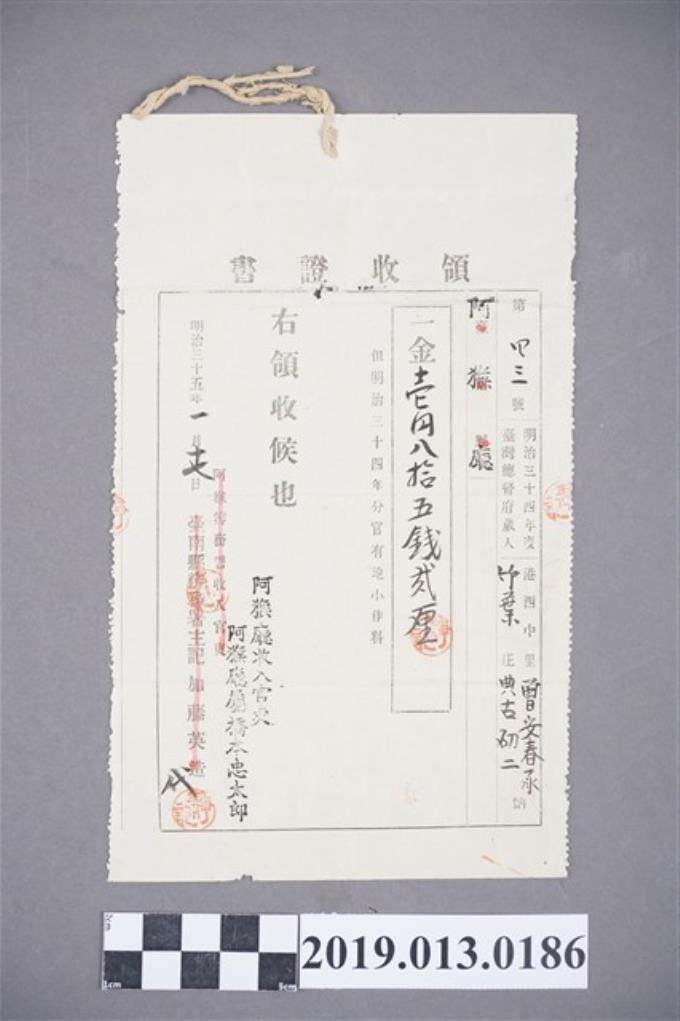 領收證書
第四三號
明治三十四年度
臺灣總督府歲入
港西中里
竹葉庄
曾安春承
典古初二
阿猴廳
一金壱円八拾五錢弐厘
但明治三十四年分官有地小作料
右領收候也
明治三十五年一月 日
阿猴廳收入官吏
阿猴廳屬橋本忠太郎
加藤英造
代
1cm
5cm
2019.013.0186